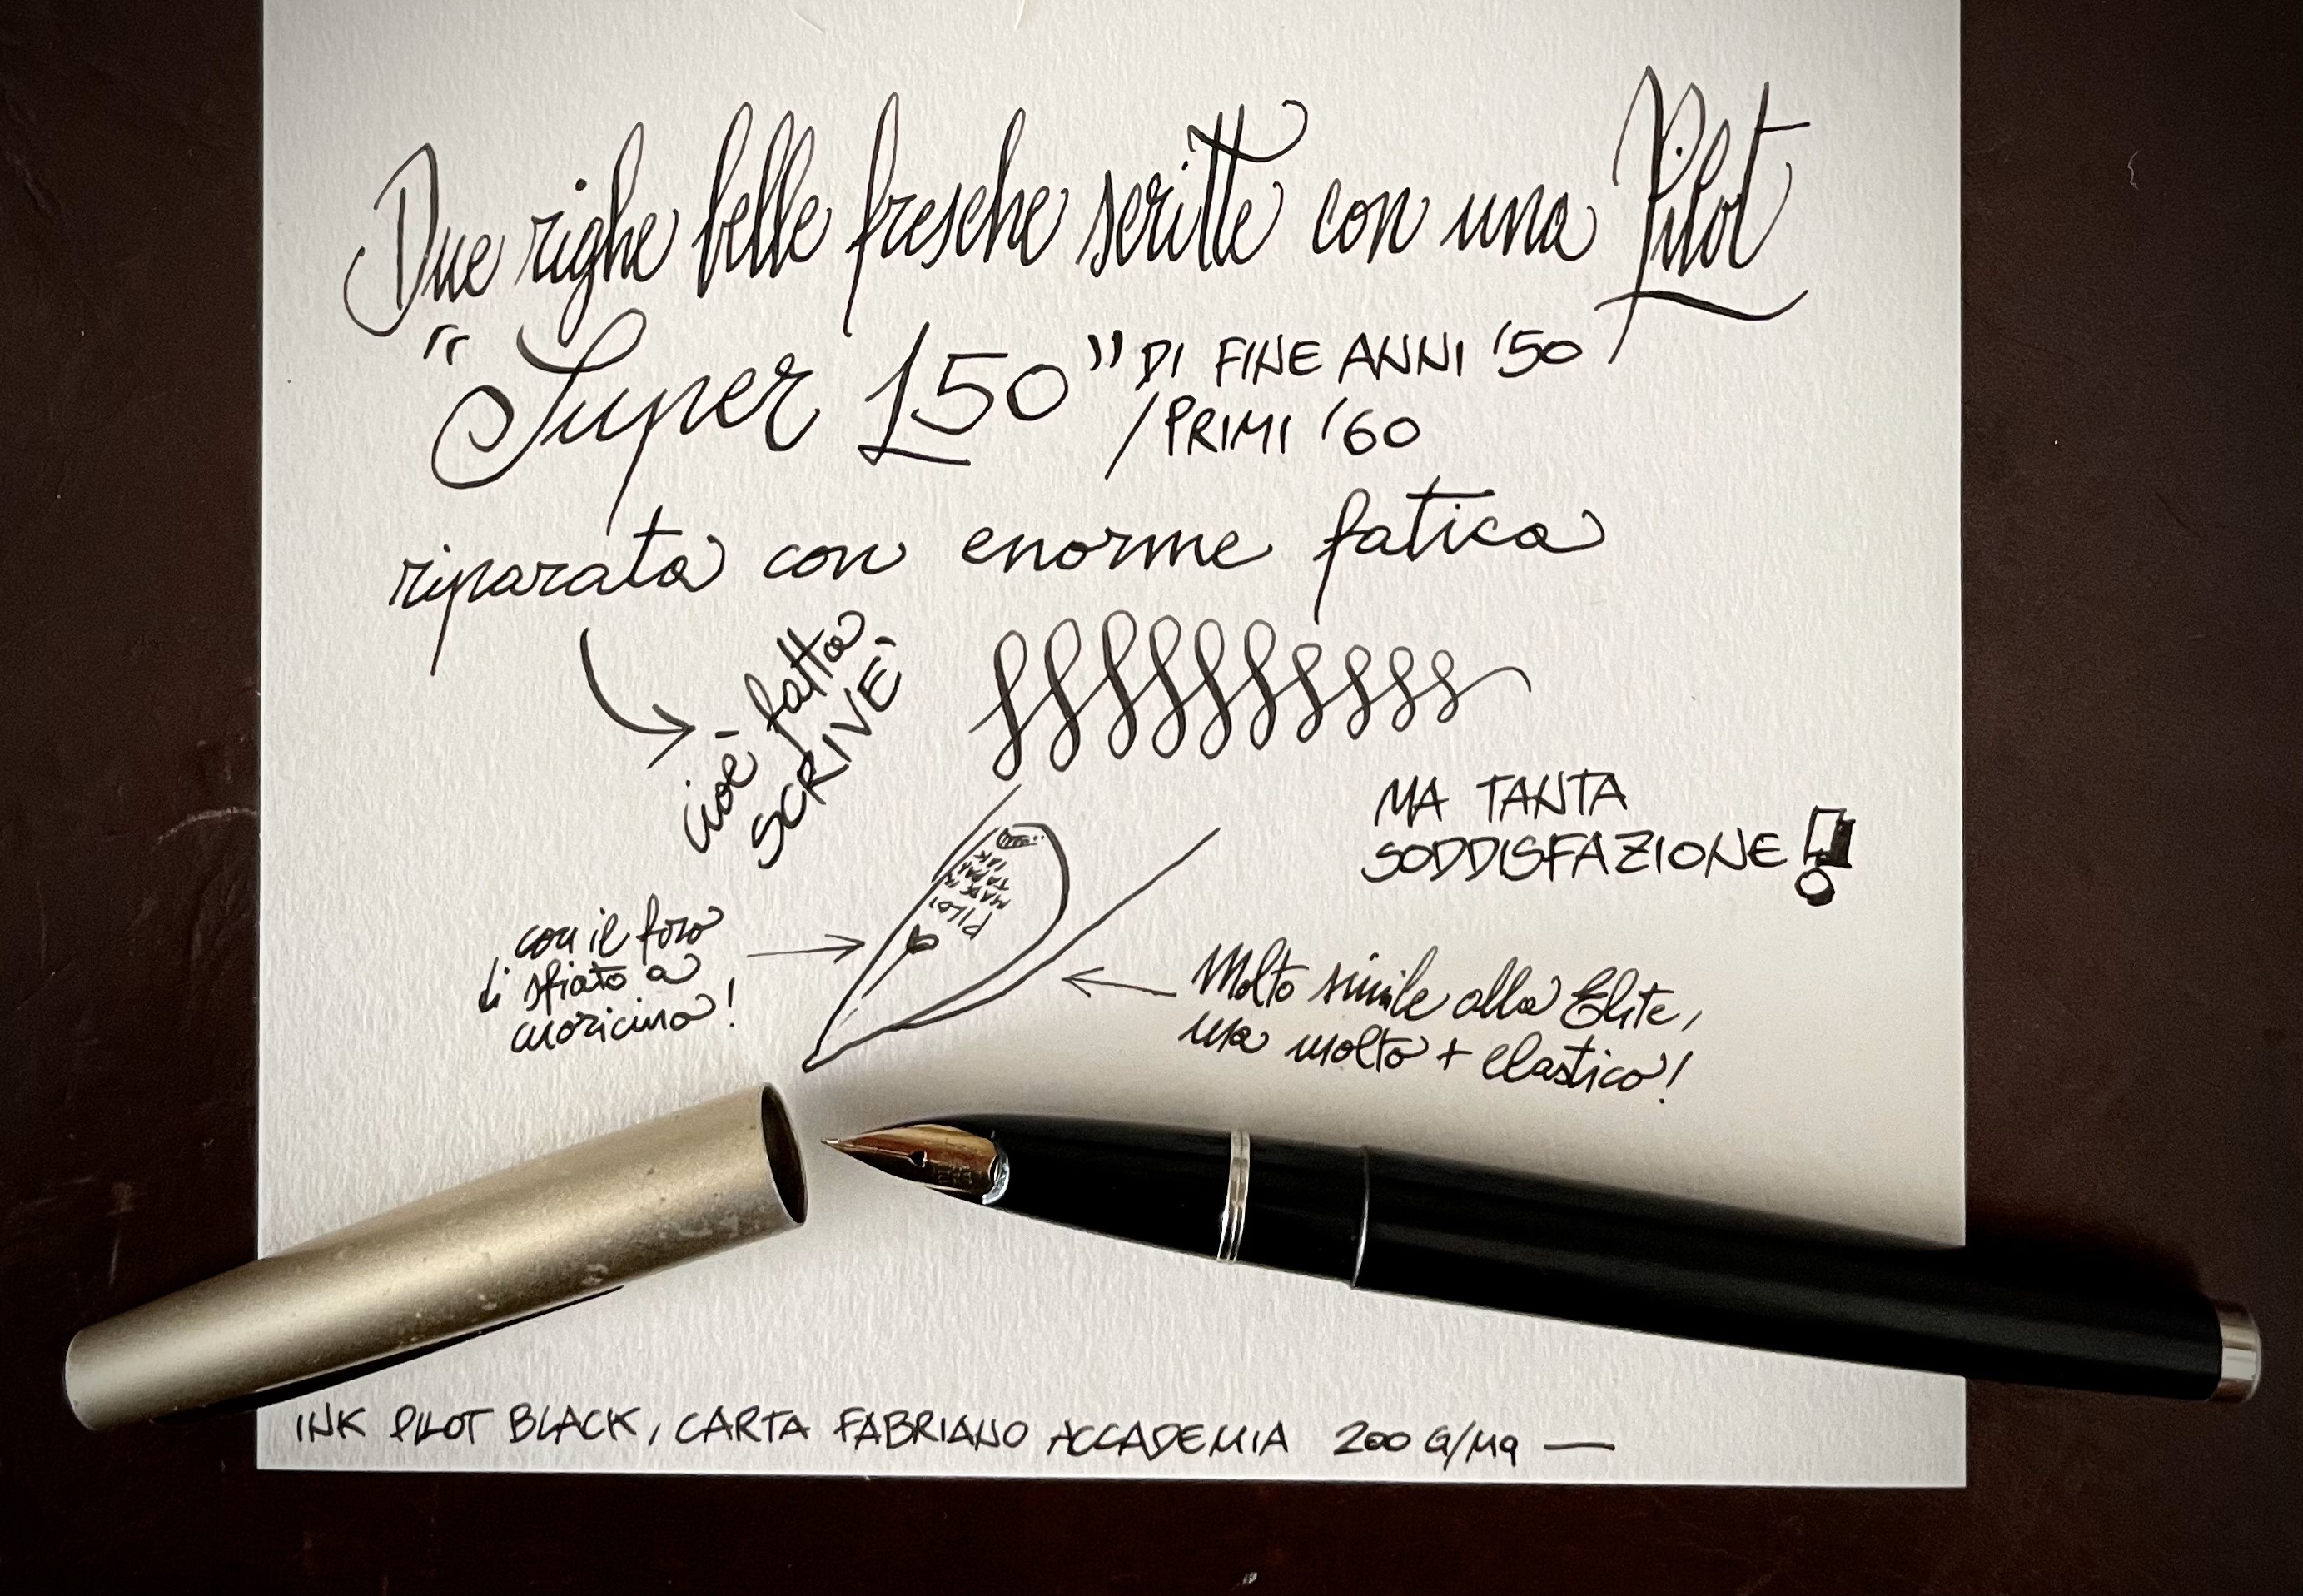 Due righe belle fresche scritte con una Pilot
"Super 150" DI FINE ANNI '50
/PRIMI '60
riparata con enorme fatica
cioè fatta
SCRIVE,
MA TANTA
SODDISFAZIONE!
con il foro
di sfiato a
cuoricino!
PILOT
MADE IN
JAPAN
14K
Molto simile alla Elite,
ma molto + elastico!
INK PILOT BLACK, CARTA FABRIANO ACCADEMIA 200 G/MQ —